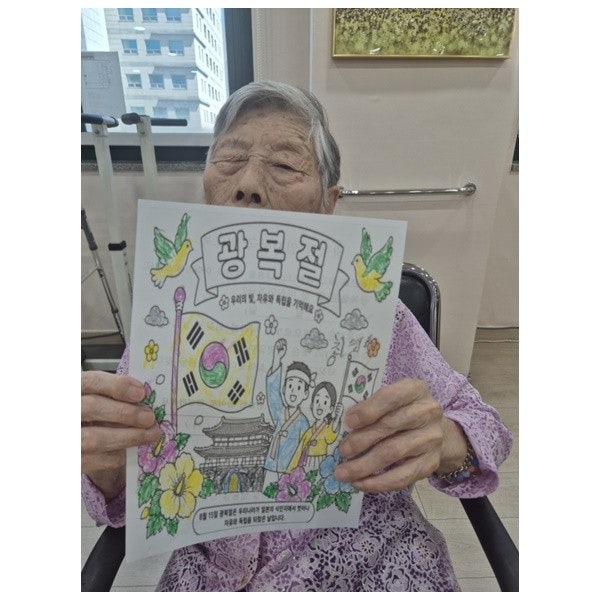 광복절
우리의 빛, 자유와 독립을 기억해요
8월 15일 광복절은 우리나라가 일본의 식민지에서 벗어나
자유와 독립을 되찾은 날입니다.